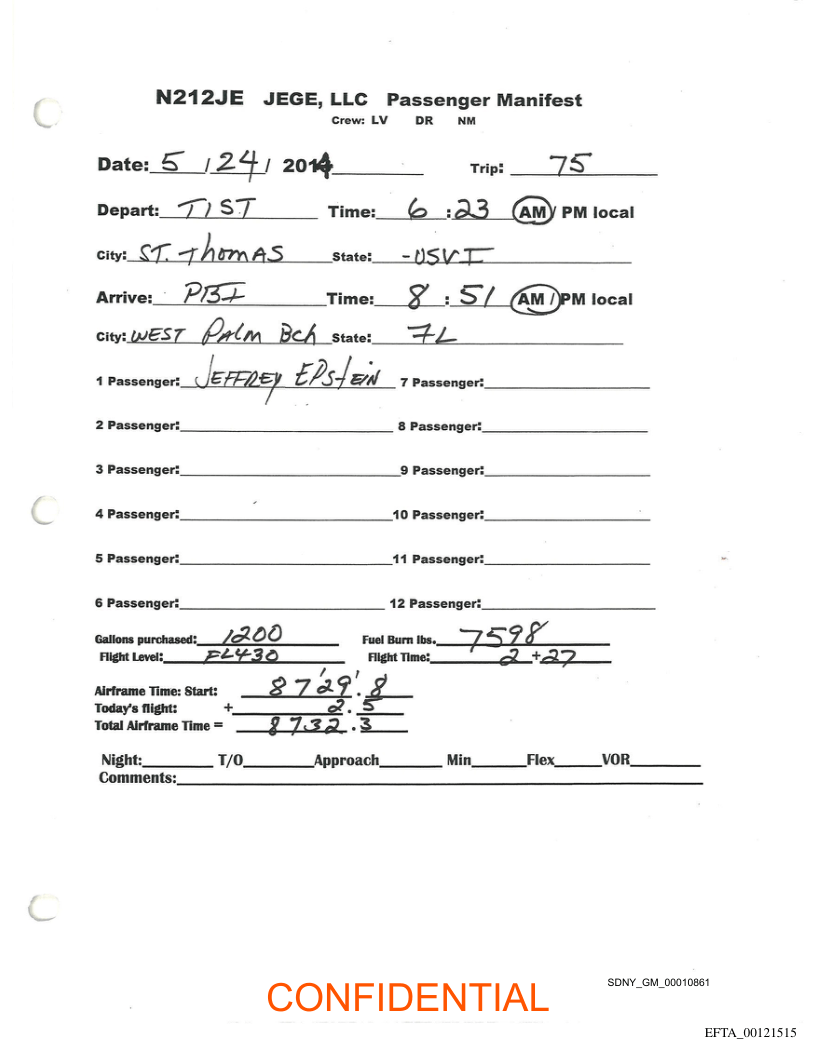 N212JE JEGE, LLC Passenger Manifest
Crew: LV DR NM
Date: 5 / 24 / 2014 Trip: 75
Depart: TIST Time: 6 : 23 AM / PM local
City: ST. Thomas State: - USVI
Arrive: PBI Time: 8 : 51 AM / PM local
City: WEST Palm Bch State: FL
1 Passenger: JEFFREY EPStEIN 7 Passenger:
2 Passenger: 8 Passenger:
3 Passenger: 9 Passenger:
4 Passenger: 10 Passenger:
5 Passenger: 11 Passenger:
6 Passenger: 12 Passenger:
Gallons purchased: 1200 Fuel Burn lbs. 7598
Flight Level: FL430 Flight Time: 2 + 27
Airframe Time: Start: 8729.8
Today's flight: + 2.5
Total Airframe Time = 8732.3
Night: T/O Approach Min Flex VOR
Comments:
SDNY_GM_00010861
CONFIDENTIAL
EFTA_00121515